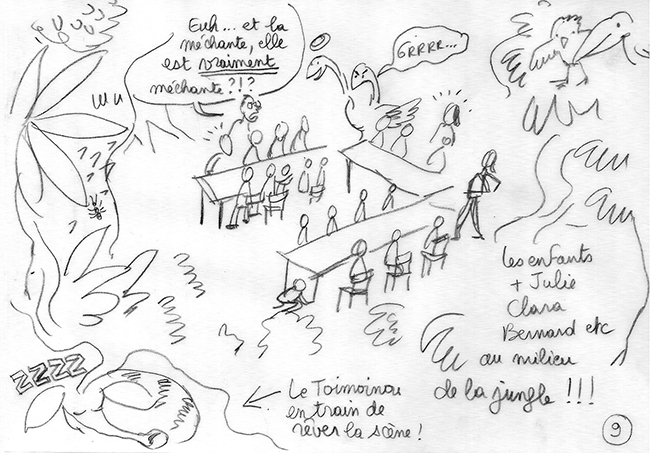 Euh... et la
méchante, elle
est vraiment
méchante ?!?
GRRRR...
Les enfants
+ Julie
Clara
Bernard etc
au milieu
de la jungle !!!
ZZZZ
Le Toimoinou
en train de
rêver la scène !
9